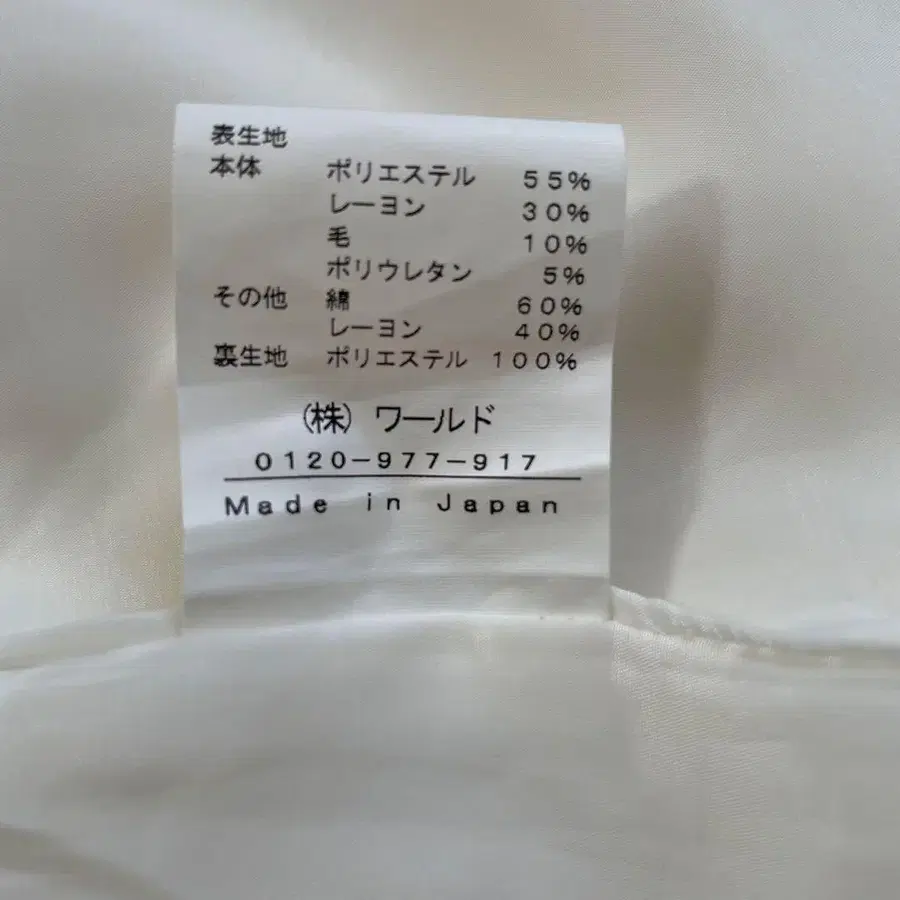 表生地
本体 ポリエステル 55%
レーヨン 30%
毛 10%
ポリウレタン 5%
その他 綿 60%
レーヨン 40%
裏生地 ポリエステル 100%
(株) ワールド
0120-977-917
Made in Japan